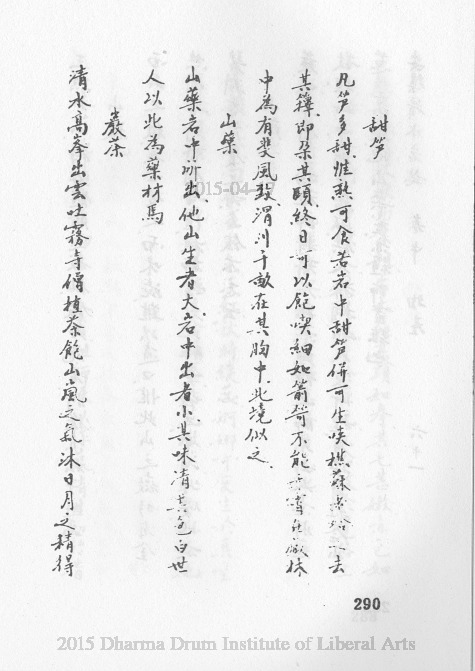 甜笋
凡笋多甜惟熟可食若岩中甜笋併可生啖樵蘇者拾以去
其籜即朶其頤終日可以飽喫細如箭箬不能
中為有斐風致渭川千畝在其胸中此境似之
山藥
山藥岩中所出他山生者大岩中出者小其味清其色白世
人以此為藥材焉
巖茶
清水高峯出雲吐霧寺僧植茶飽山嵐之氣沐日月之精得
2015-04-
290
2015 Dharma Drum Institute of Liberal Arts